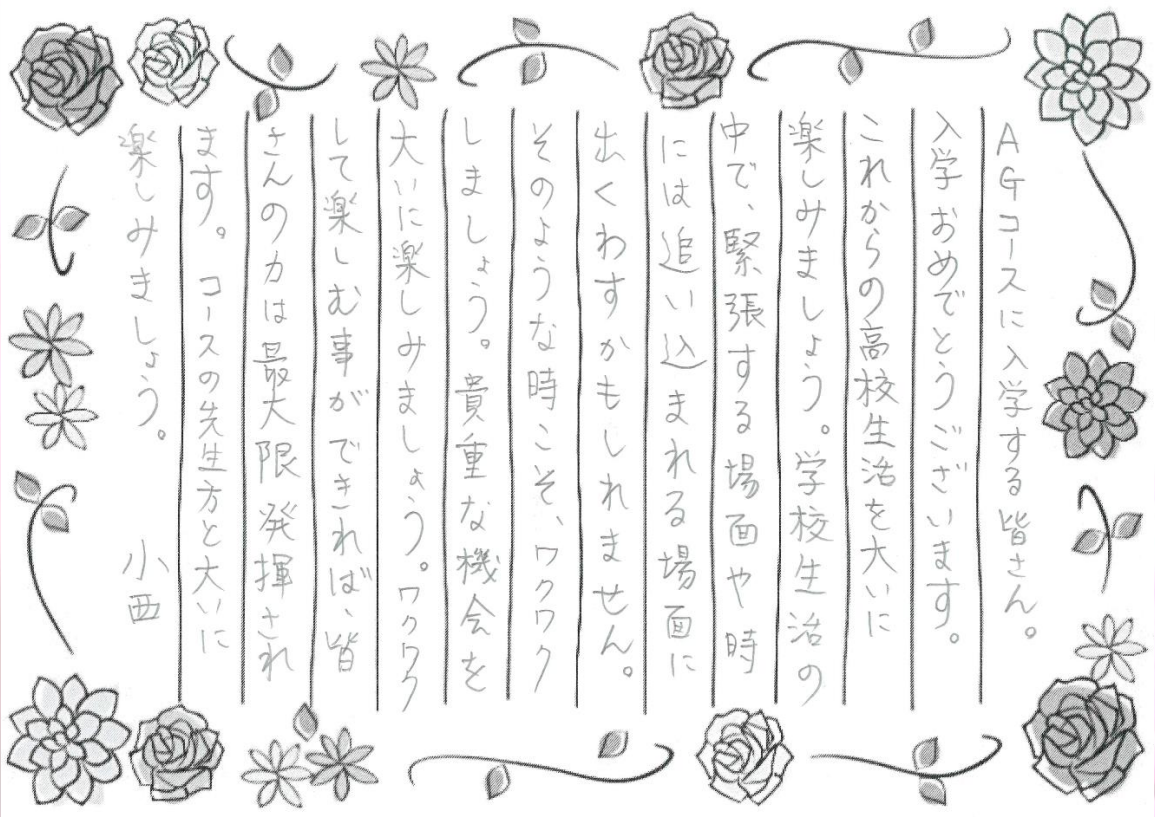 AGコースに入学する皆さん。
入学おめでとうございます。
これからの高校生活を大いに
楽しみましょう。学校生活の
中で、緊張する場面や時
には追い込まれる場面に
出くわすかもしれません。
そのような時こそ、ワクワク
しましょう。貴重な機会を
大いに楽しみましょう。ワクワク
して楽しむ事ができれば、皆
さんの力は最大限発揮され
ます。コースの先生方と大いに
楽しみましょう。 小西